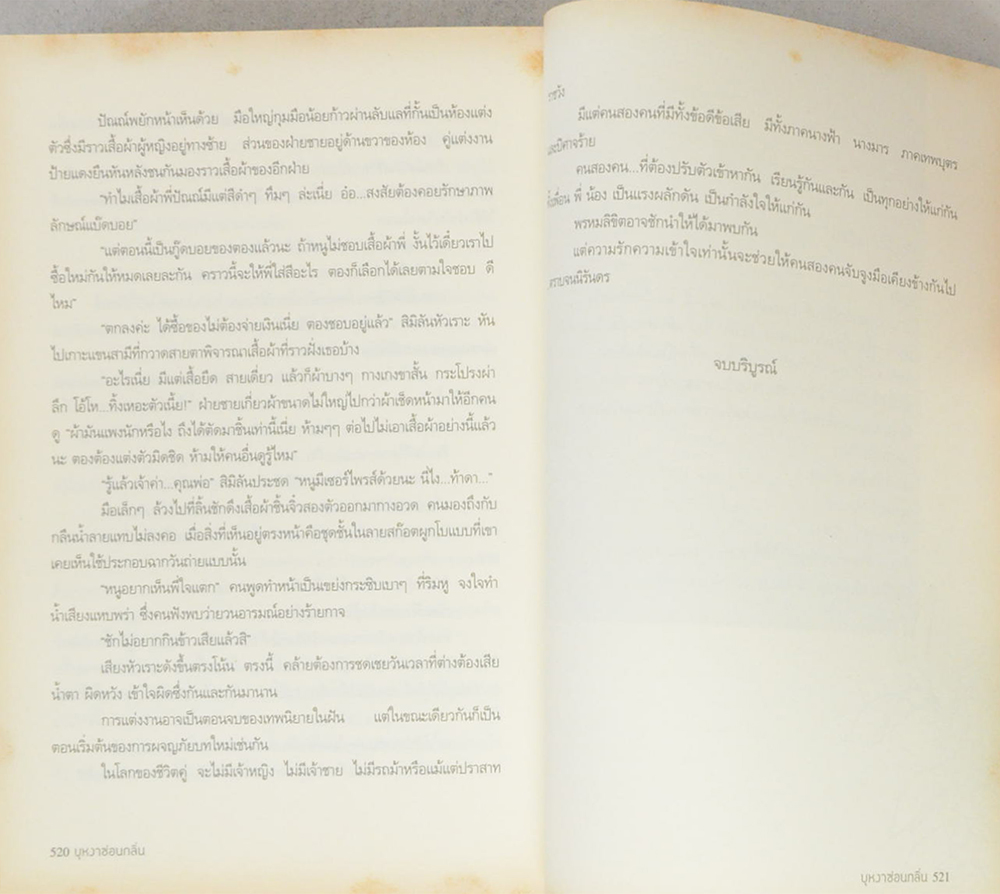 ปัณณ์พยักหน้าเห็นด้วย มือใหญ่กุมมือน้อยก้าวผ่านลับแลที่กั้นเป็นห้องแต่ง
ตัวซึ่งมีราวเสื้อผ้าผู้หญิงอยู่ทางซ้าย ส่วนของฝ่ายชายอยู่ด้านขวาของห้อง คู่แต่งงาน
ป้ายแดงยืนหันหลังชนกันมองราวเสื้อผ้าของอีกฝ่าย
"ทำไมเสื้อผ้าพี่ปัณณ์มีแต่สีดำๆ ทึมๆ ล่ะเนี่ย อ๋อ...สงสัยต้องคอยรักษาภาพ
ลักษณ์แบ๊ดบอย"
"แต่ตอนนี้เป็นกู๊ดบอยของตองแล้วนะ ถ้าหนูไม่ชอบเสื้อผ้าพี่ งั้นไว้เดี๋ยวเราไป
ซื้อใหม่กันให้หมดเลยละกัน คราวนี้จะให้พี่ใส่สีอะไร ตองก็เลือกได้เลยตามใจชอบ ดี
ไหม"
"ตกลงค่ะ ได้ซื้อของไม่ต้องจ่ายเงินเนี่ย ตองชอบอยู่แล้ว" สิมิลันหัวเราะ หัน
ไปเกาะแขนสามีที่กวาดสายตาพิจารณาเสื้อผ้าที่ราวฝั่งเธอบ้าง
"อะไรเนี่ย มีแต่เสื้อยืด สายเดี่ยว แล้วก็ผ้าบางๆ กางเกงขาสั้น กระโปรงผ่า
ลึก โอ้โห...ทิ้งเหอะตัวเนี้ย!" ฝ่ายชายเกี่ยวผ้าขนาดไม่ใหญ่ไปกว่าผ้าเช็ดหน้ามาให้อีกคน
ดู "ผ้ามันแพงนักหรือไง ถึงได้ตัดมาชิ้นเท่านี้เนี่ย ห้ามๆๆ ต่อไปไม่เอาเสื้อผ้าอย่างนี้แล้ว
นะ ตองต้องแต่งตัวมิดชิด ห้ามให้คนอื่นดูรู้ไหม"
"รู้แล้วเจ้าค่า...คุณพ่อ" สิมิลันประชด "หนูมีเซอร์ไพรส์ด้วยนะ นี่ไง...ท้าดา..."
มือเล็กๆ ล้วงไปที่ลิ้นชักดึงเสื้อผ้าชิ้นจิ๋วสองตัวออกมากางอวด คนมองถึงกับ
กลืนน้ำลายแทบไม่ลงคอ เมื่อสิ่งที่เห็นอยู่ตรงหน้าคือชุดชั้นในลายสก๊อตผูกโบแบบที่เขา
เคยเห็นใช้ประกอบฉากวันถ่ายแบบนั้น
"หนูอยากเห็นพี่ใจแตก" คนพูดทำหน้าเป็นเขย่งกระซิบเบาๆ ที่ริมหู จงใจทำ
น้ำเสียงแหบพร่า ซึ่งคนฟังพบว่ายวนอารมณ์อย่างร้ายกาจ
"ชักไม่อยากกินข้าวเสียแล้วสิ"
เสียงหัวเราะดังขึ้นตรงโน้น ตรงนี้ คล้ายต้องการชดเชยวันเวลาที่ต่างต้องเสีย
น้ำตา ผิดหวัง เข้าใจผิดซึ่งกันและกันมานาน
การแต่งงานอาจเป็นตอนจบของเทพนิยายในฝัน แต่ในขณะเดียวกันก็เป็น
ตอนเริ่มต้นของการผจญภัยบทใหม่เช่นกัน
ในโลกของชีวิตคู่ จะไม่มีเจ้าหญิง ไม่มีเจ้าชาย ไม่มีรถม้าหรือแม้แต่ปราสาท
520 บุหงาซ่อนกลิ่น
ราชวัง
มีแต่คนสองคนที่มีทั้งข้อดีข้อเสีย มีทั้งภาคนางฟ้า นางมาร ภาคเทพบุตร
และปีศาจร้าย
คนสองคน...ที่ต้องปรับตัวเข้าหากัน เรียนรู้กันและกัน เป็นทุกอย่างให้แก่กัน
ทั้งเพื่อน พี่ น้อง เป็นแรงผลักดัน เป็นกำลังใจให้แก่กัน
พรหมลิขิตอาจชักนำให้ได้มาพบกัน
แต่ความรักความเข้าใจเท่านั้นจะช่วยให้คนสองคนจับจูงมือเคียงข้างกันไป
ตราบจนนิรันดร
จบบริบูรณ์
บุหงาซ่อนกลิ่น 521